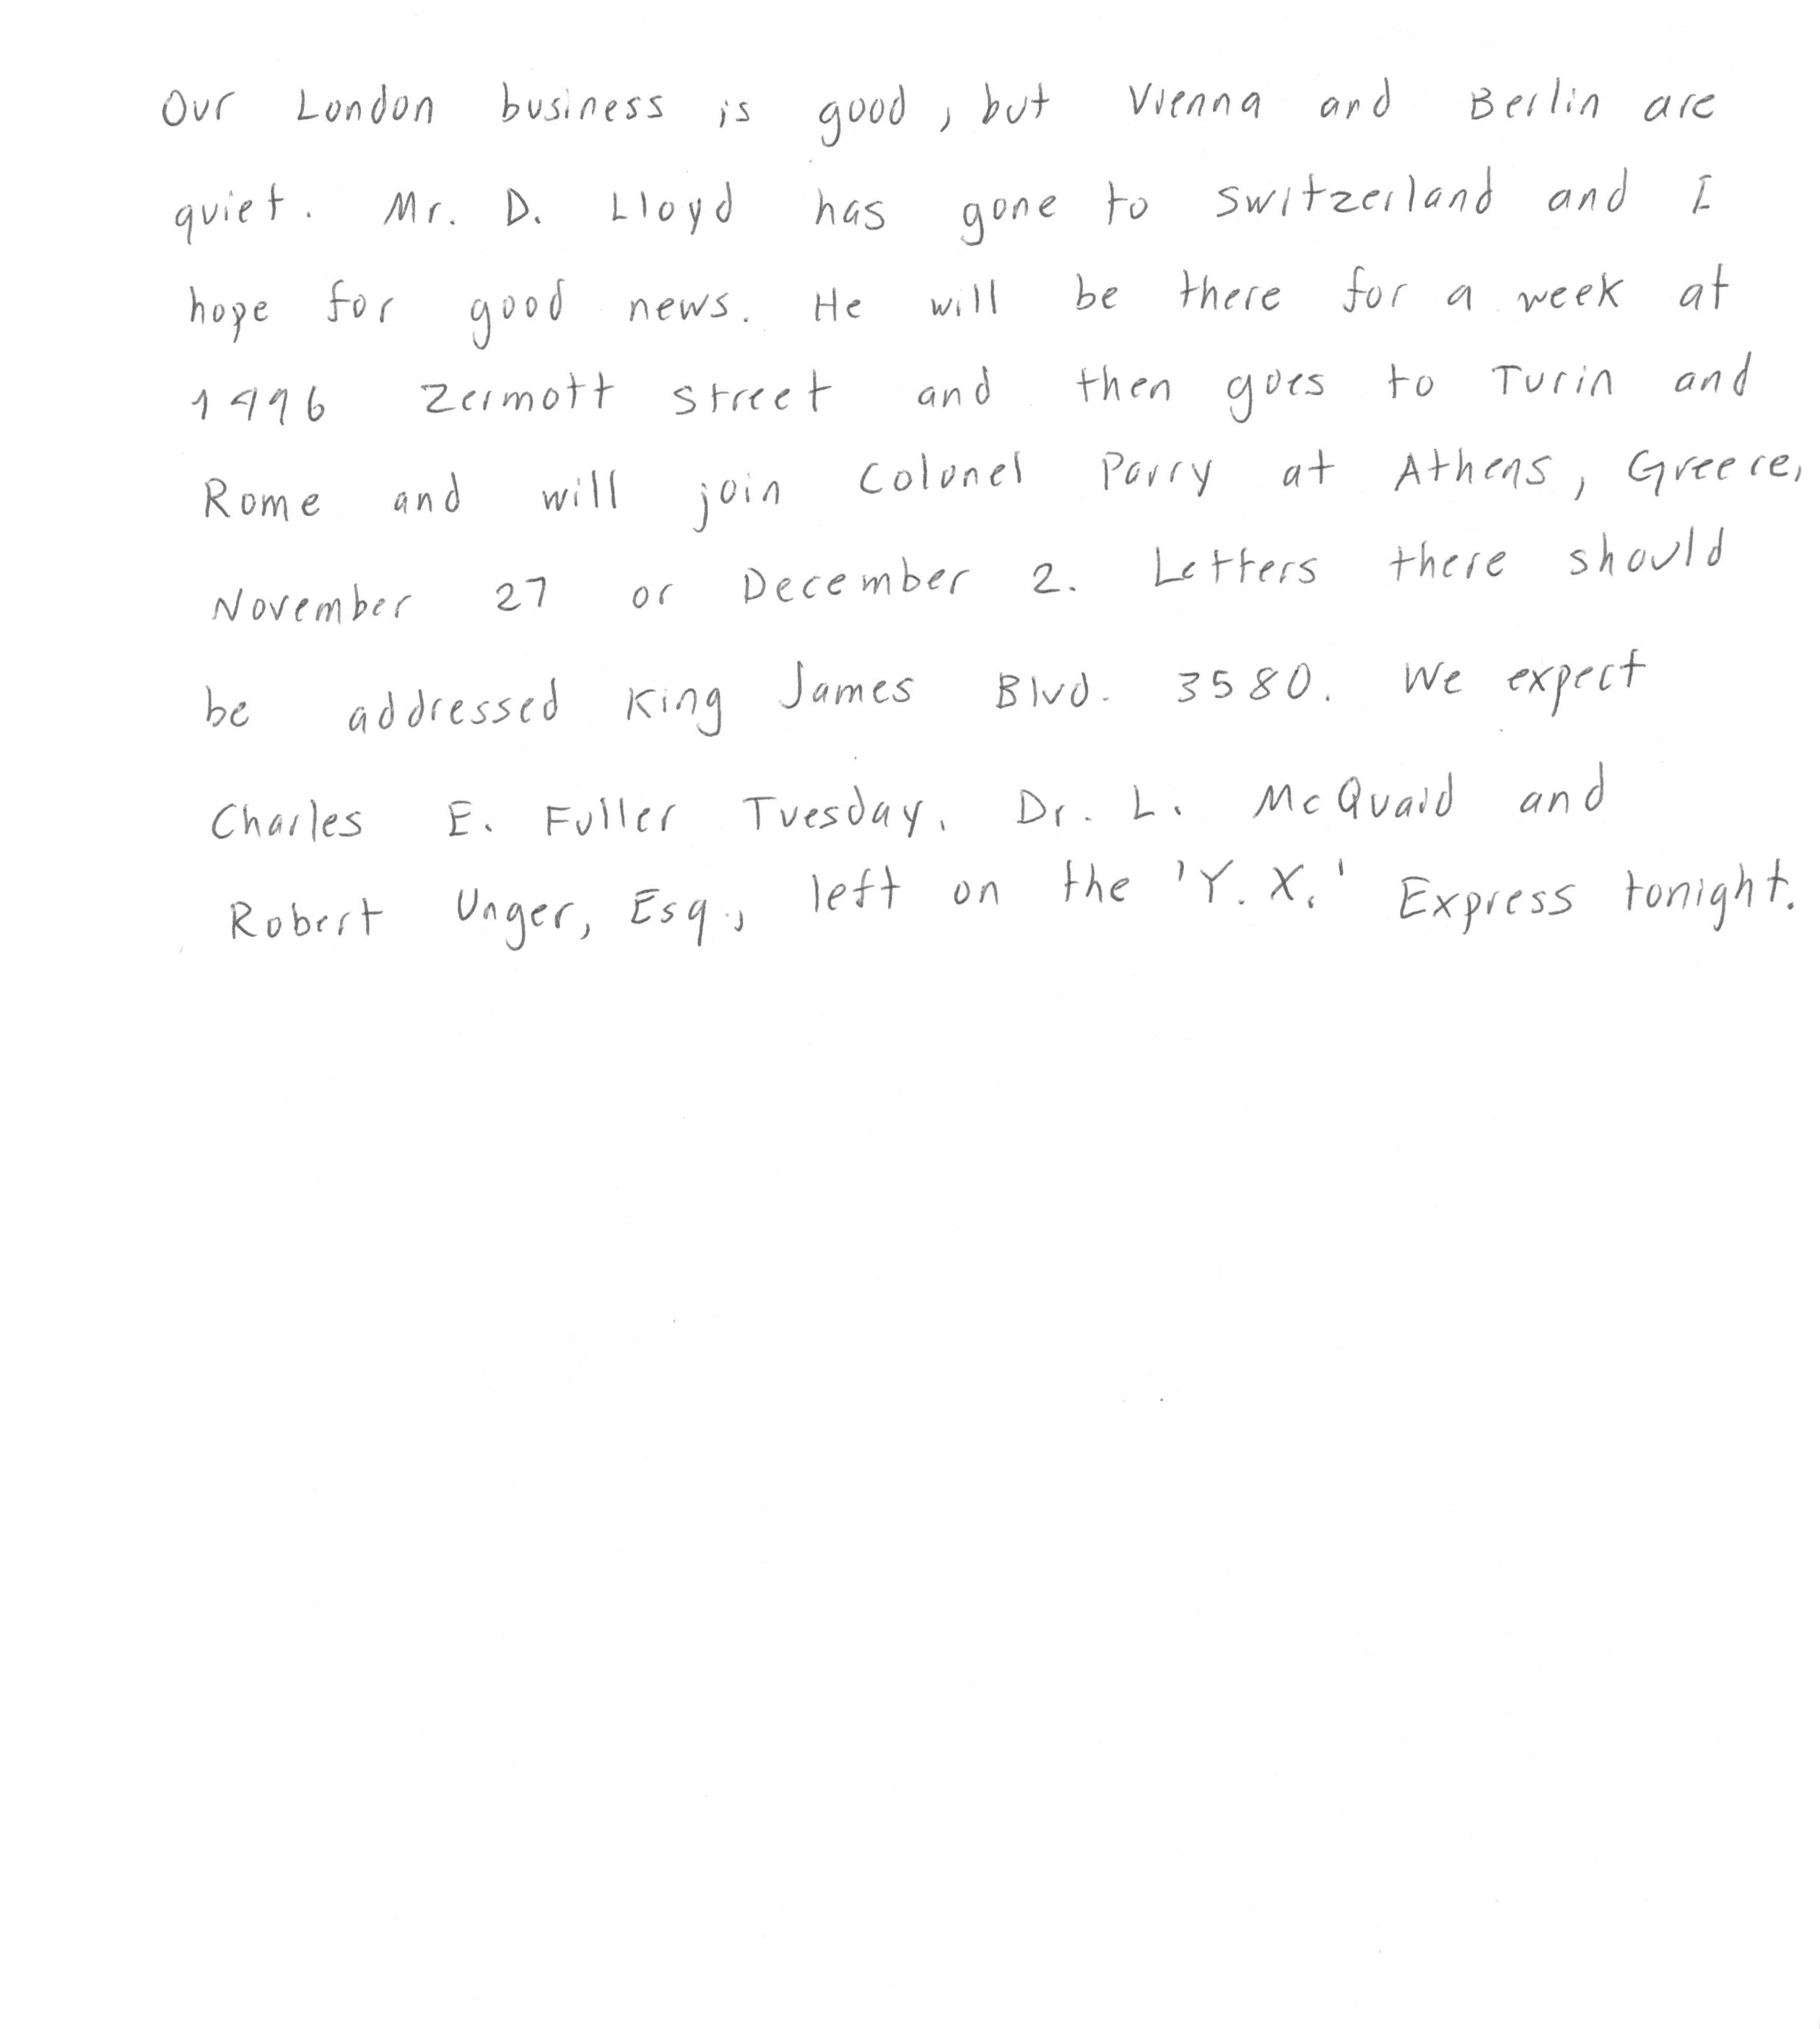 Our London business is good, but Vienna and Berlin are
quiet. Mr. D. Lloyd has gone to Switzerland and I
hope for good news. He will be there for a week at
1996 Zermott street and then goes to Turin and
Rome and will join Colonel Parry at Athens, Greece,
November 27 or December 2. Letters there should
be addressed King James Blvd. 3580. We expect
Charles E. Fuller Tuesday. Dr. L. McQuaid and
Robert Unger, Esq., left on the 'Y. X.' Express tonight.